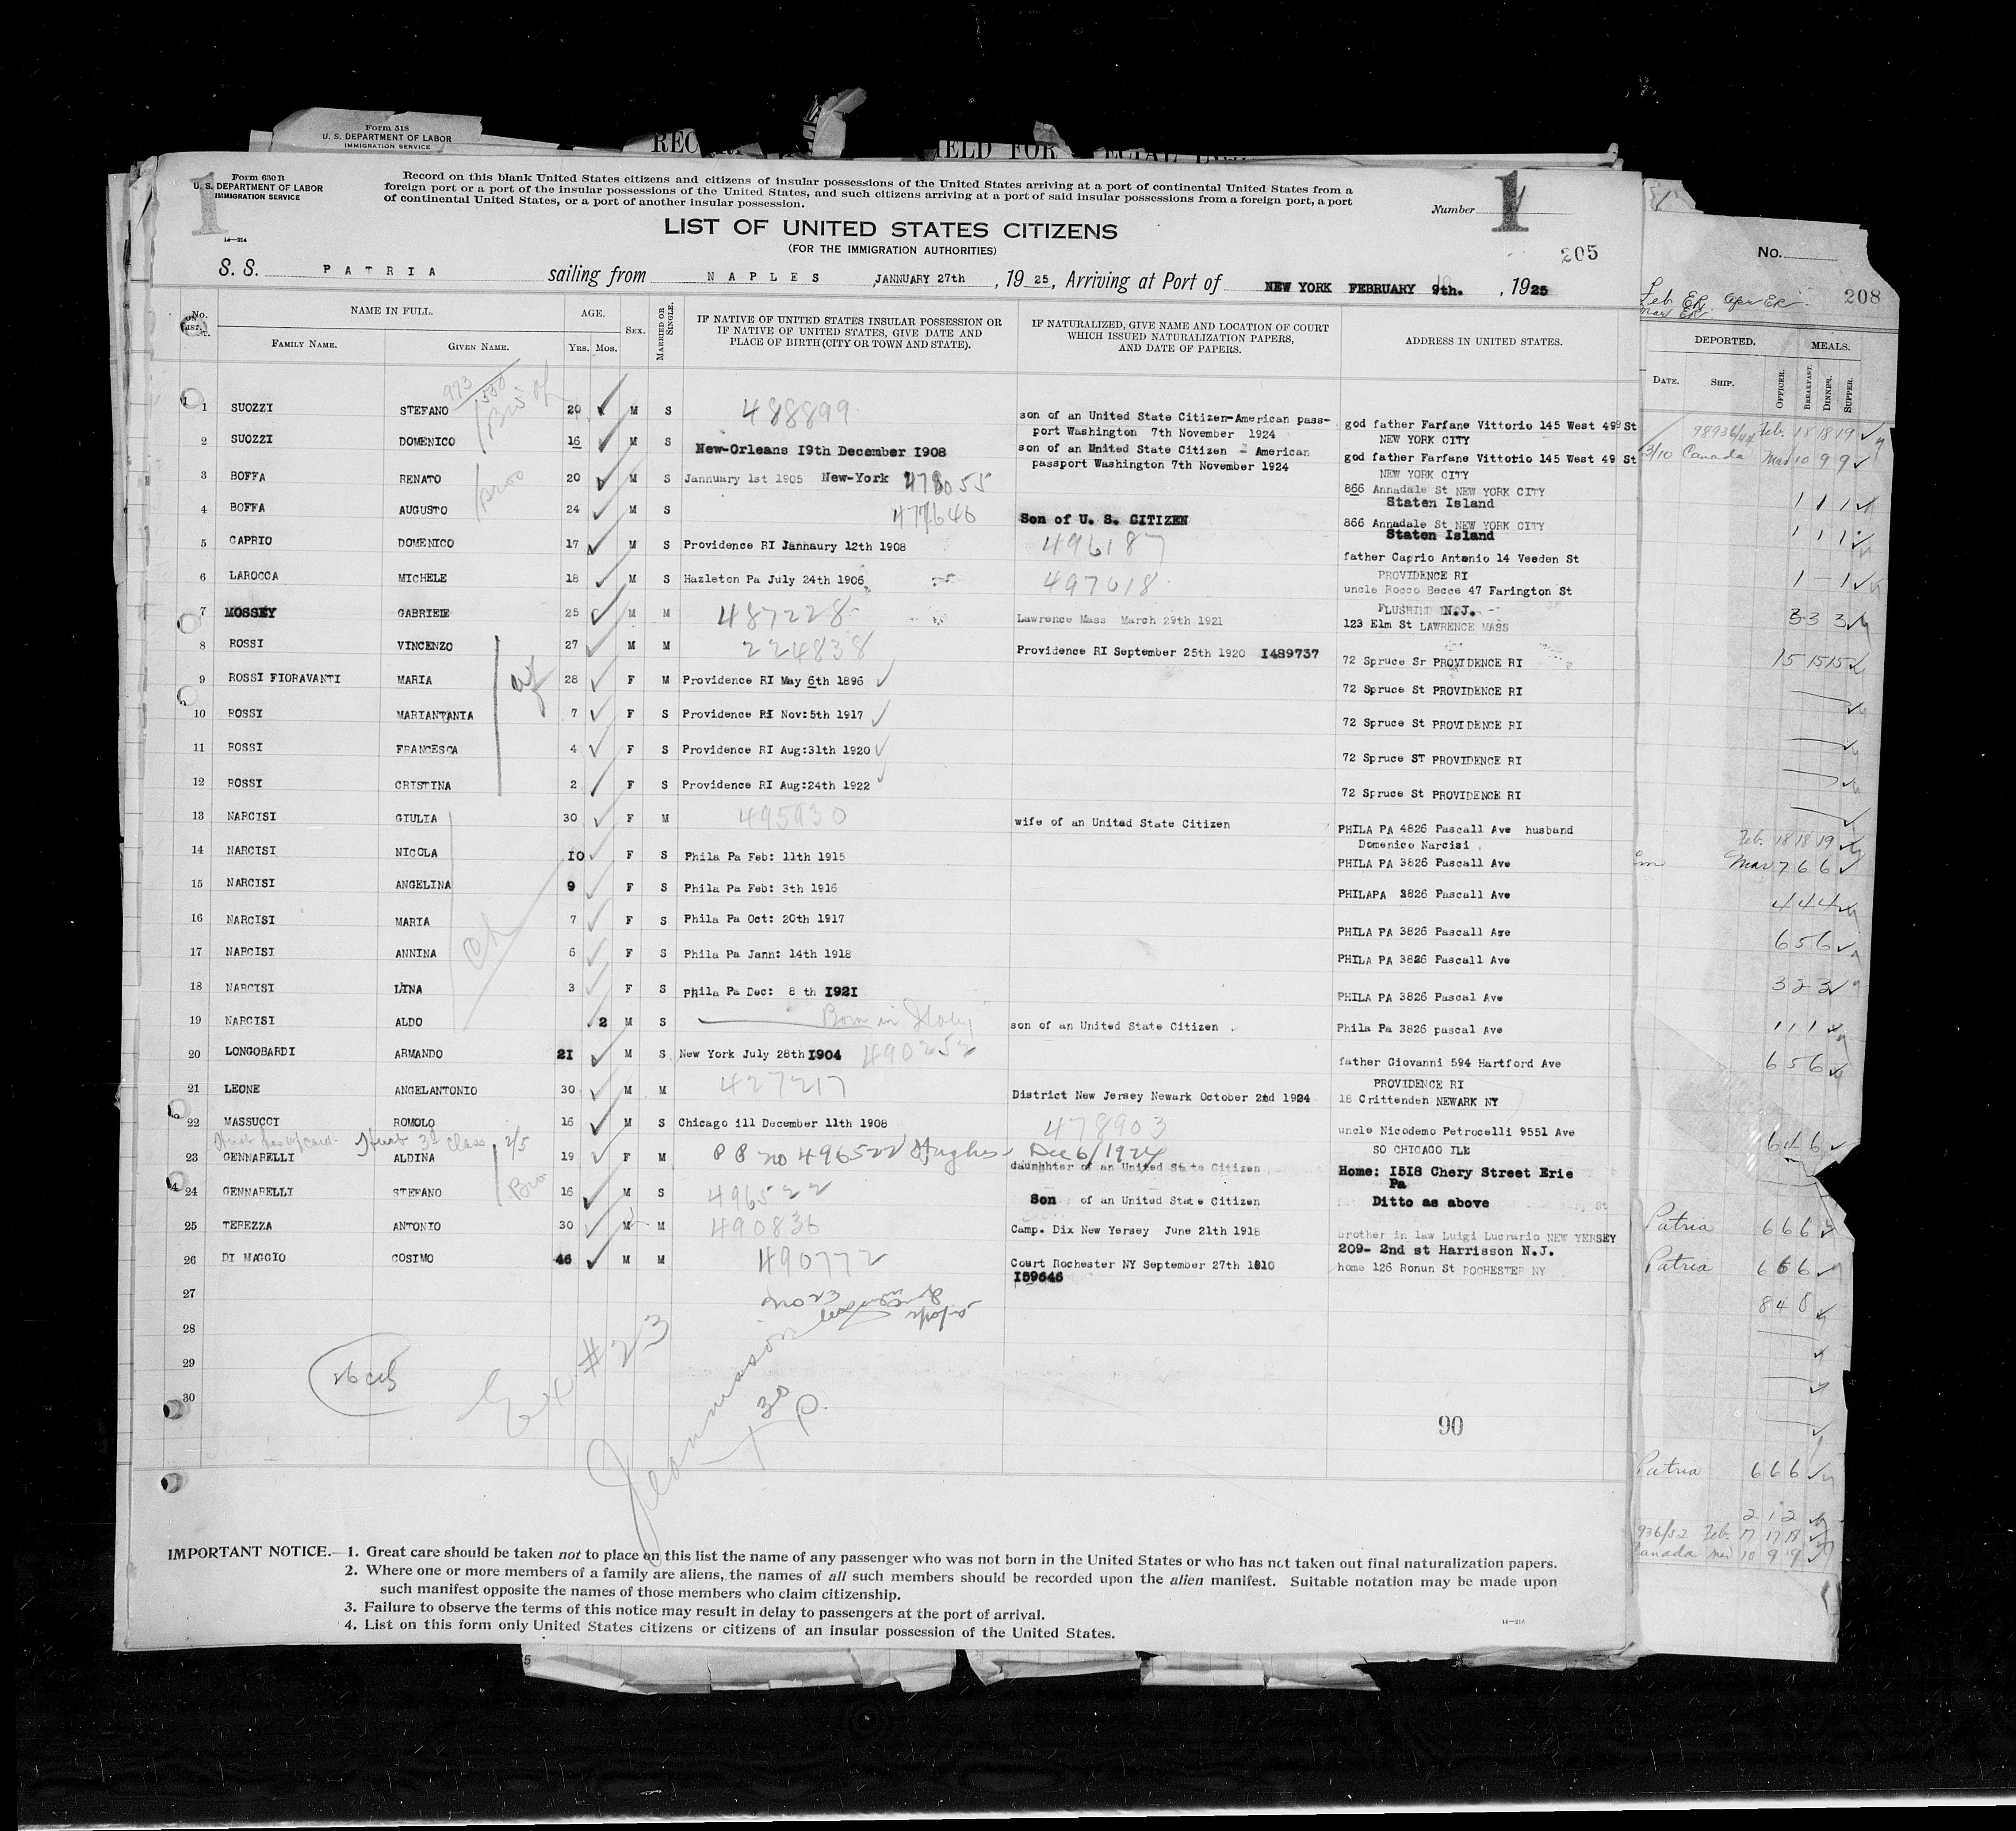 Form 518
U. S. DEPARTMENT OF LABOR
IMMIGRATION SERVICE
REC IELD FOR ECIAL
1
Form 630 B
U. S. DEPARTMENT OF LABOR
IMMIGRATION SERVICE
14—214
Record on this blank United States citizens and citizens of insular possessions of the United States arriving at a port of continental United States from a
foreign port or a port of the insular possessions of the United States, and such citizens arriving at a port of said insular possessions from a foreign port, a port
of continental United States, or a port of another insular possession.
Number 1
LIST OF UNITED STATES CITIZENS
(FOR THE IMMIGRATION AUTHORITIES)
205
S. S. PATRIA sailing from NAPLES, JANNUARY 27th, 1925, Arriving at Port of NEW YORK FEBRUARY 9th. , 1925
No. ON LIST. NAME IN FULL. FAMILY NAME. GIVEN NAME. AGE. Yrs. Mos. SEX. MARRIED OR SINGLE. IF NATIVE OF UNITED STATES INSULAR POSSESSION OR IF NATIVE OF UNITED STATES, GIVE DATE AND PLACE OF BIRTH (CITY OR TOWN AND STATE). IF NATURALIZED, GIVE NAME AND LOCATION OF COURT WHICH ISSUED NATURALIZATION PAPERS, AND DATE OF PAPERS. ADDRESS IN UNITED STATES.
973
530
1 SUOZZI STEFANO 20 M S 488899 son of an United State Citizen-American pass-port Washington 7th November 1924 god father Farfane Vittorio 145 West 49 St NEW YORK CITY
2 SUOZZI DOMENICO 16 M S New-Orleans 19th December 1908 son of an United State Citizen - American passport Washington 7th November 1924 god father Farfane Vittorio 145 West 49 St NEW YORK CITY
3 BOFFA RENATO 20 M S Jannuary 1st 1905 New-York 478055 866 Annadale St NEW YORK CITY Staten Island
4 BOFFA AUGUSTO 24 M S 477646 Son of U. S. CITIZEN 866 Annadale St NEW YORK CITY Staten Island
5 CAPRIO DOMENICO 17 M S Providence RI Jannaury 12th 1908 496187 father Caprio Antonio 14 Veeden St PROVIDENCE RI
6 LAROCCA MICHELE 18 M S Hazleton Pa July 24th 1906 497618 uncle Rocco Becce 47 Farington St N.J.
7 MOSSEY GABRIELE 25 M M 487228 Lawrence Mass March 29th 1921 123 Elm St LAWRENCE MASS
8 ROSSI VINCENZO 27 M M 224838 Providence RI September 25th 1920 1489737 72 Spruce Sr PROVIDENCE RI
9 ROSSI FIORAVANTI MARIA 28 F M Providence RI May 6th 1896 72 Spruce St PROVIDENCE RI
10 ROSSI MARIANTANIA 7 F S Providence RI Nov:5th 1917 72 Spruce St PROVIDENCE RI
11 ROSSI FRANCESCA 4 F S Providence RI Aug:31th 1920 72 Spruce ST PROVIDENCE RI
12 ROSSI CRISTINA 2 F S Providence RI Aug:24th 1922 72 Spruce St PROVIDENCE RI
13 NARCISI GIULIA 30 F M 495930 wife of an United State Citizen PHILA PA 4826 Pascall Ave husband Domenico Narcisi
14 NARCISI NICOLA 10 F S Phila Pa Feb: 11th 1915 PHILA PA 3826 Pascall Ave
15 NARCISI ANGELINA 9 F S Phila Pa Feb: 3th 1916 PHILAPA 3826 Pascall Ave
16 NARCISI MARIA 7 F S Phila Pa Oct: 20th 1917 PHILA PA 3826 Pascall Ave
17 NARCISI ANNINA 6 F S Phila Pa Jann: 14th 1918 PHILA PA 3826 Pascall Ave
18 NARCISI LINA 3 F S Phila Pa Dec: 8 th 1921 PHILA PA 3826 Pascal Ave
19 NARCISI ALDO 2 M S Born in Italy son of an United State Citizen Phila Pa 3826 pascal Ave
20 LONGOBARDI ARMANDO 21 M S New York July 28th 1904 490252 father Giovanni 594 Hartford Ave PROVIDENCE RI
21 LEONE ANGELANTONIO 30 M M 427217 District New Jersey Newark October 2nd 1924 18 Crittenden NEWARK NY
22 MASSUCCI ROMOLO 16 M S Chicago ill December 11th 1908 478903 uncle Nicodemo Petrocelli 9551 Ave SO CHICAGO ILE
3d class 2/5
23 GENNARELLI ALDINA 19 F M P P no 496522 Hughes Dec 6/1924 daunghter of an United State Citizen Home: 1518 Chery Street Erie Pa
24 GENNARELLI STEFANO 16 M S 496522 Son of an United State Citizen Ditto as above
25 TEREZZA ANTONIO 30 M M 490836 Camp. Dix New Yersey June 21th 1918 brother in law Luigi Lucrario NEW YERSEY 209- 2nd st Harrisson N.J.
26 DI MAGGIO COSIMO 46 M M 490772 Court Rochester NY September 27th 1910 159646 home 126 Ronun St ROCHESTER NY
27
28
29
30
#23
90
IMPORTANT NOTICE.—1. Great care should be taken not to place on this list the name of any passenger who was not born in the United States or who has not taken out final naturalization papers.
2. Where one or more members of a family are aliens, the names of all such members should be recorded upon the alien manifest. Suitable notation may be made upon
such manifest opposite the names of those members who claim citizenship.
3. Failure to observe the terms of this notice may result in delay to passengers at the port of arrival.
4. List on this form only United States citizens or citizens of an insular possession of the United States.
14—214
No.
208
DEPORTED. MEALS.
DATE. SHIP. OFFICER. BREAKFAST. DINNER. SUPPER.
Feb. 18 18 19
3/10 Canada Mar 10 9 9
1 1 1
1 1 1
1 – 1
3 3 3
15 15 15
Feb. 18 18 19
Mar 7 6 6
4 4 4
6 5 6
3 2 3
1 1 1
6 5 6
6 6 6
Patria 6 6 6
Patria 6 6 6
8 4 8
Patria 6 6 6
2 1 2
936/52 Feb. 17 17 18
Canada Mar 10 9 9